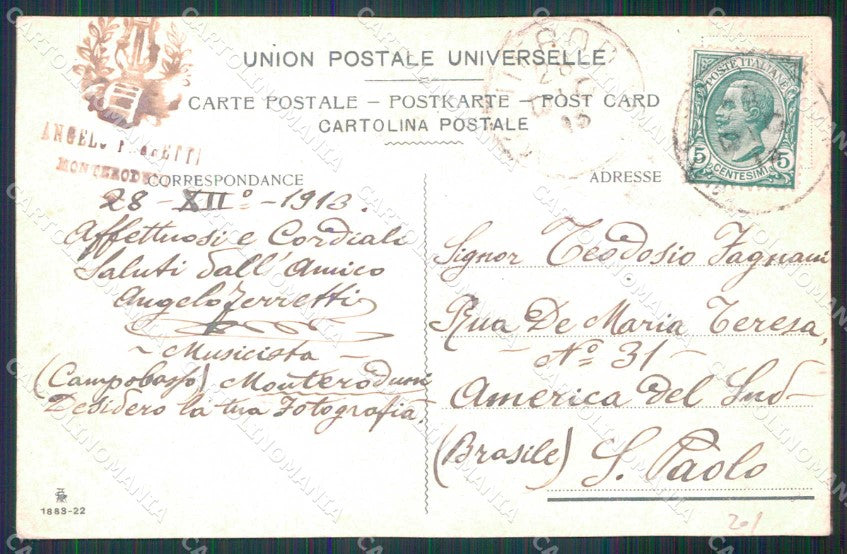 UNION POSTALE UNIVERSELLE
CARTE POSTALE – POSTKARTE – POST CARD
CARTOLINA POSTALE
POSTE ITALIANE
5 5
CENTESIMI
ANGELO
MONTERODUNI
CORRESPONDANCE
28 - XII° - 1913.
Affettuosi e Cordiali
Saluti dall'Amico
Angelo Ferretti
~ Musicista ~
(Campobasso) Monteroduni
Desidero la tua Fotografia.
1883-22
ADRESSE
Signor Teodosio Fagnani
Rua De Maria Teresa,
- N° 31 -
America del Sud -
(Brasile) S. Paolo
201
CARTOLINOMANIA